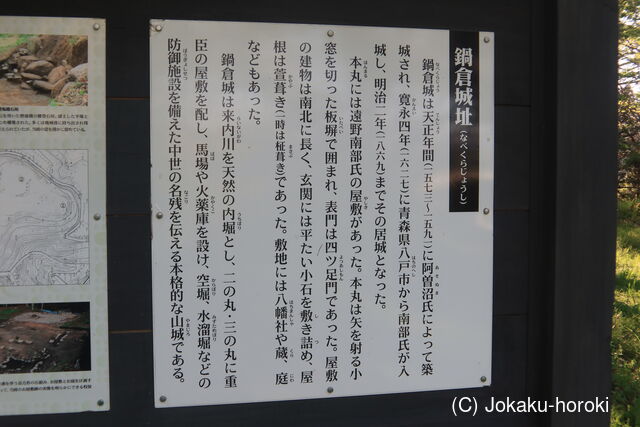 鍋倉城址(なべくらじょうし)
鍋倉城は天正年間(一五七三~一五九一)に阿曽沼氏によって築
城され、寛永四年(一六二七)に青森県八戸市から南部氏が入
城し、明治二年(一八六九)までその居城となった。
本丸には遠野南部氏の屋敷があった。本丸は矢を射る小
窓を切った板塀で囲まれ、表門は四ツ足門であった。屋敷
の建物は南北に長く、玄関には平たい小石を敷き詰め、屋
根は萱葺き(一時は柾葺き)であった。敷地には八幡社や蔵、庭
などもあった。
鍋倉城は来内川を天然の内堀とし、二の丸・三の丸に重
臣の屋敷を配し、馬場や火薬庫を設け、空堀、水溜堀などの
防御施設を備えた中世の名残を伝える本格的な山城である。
(C) Jokaku-horoki